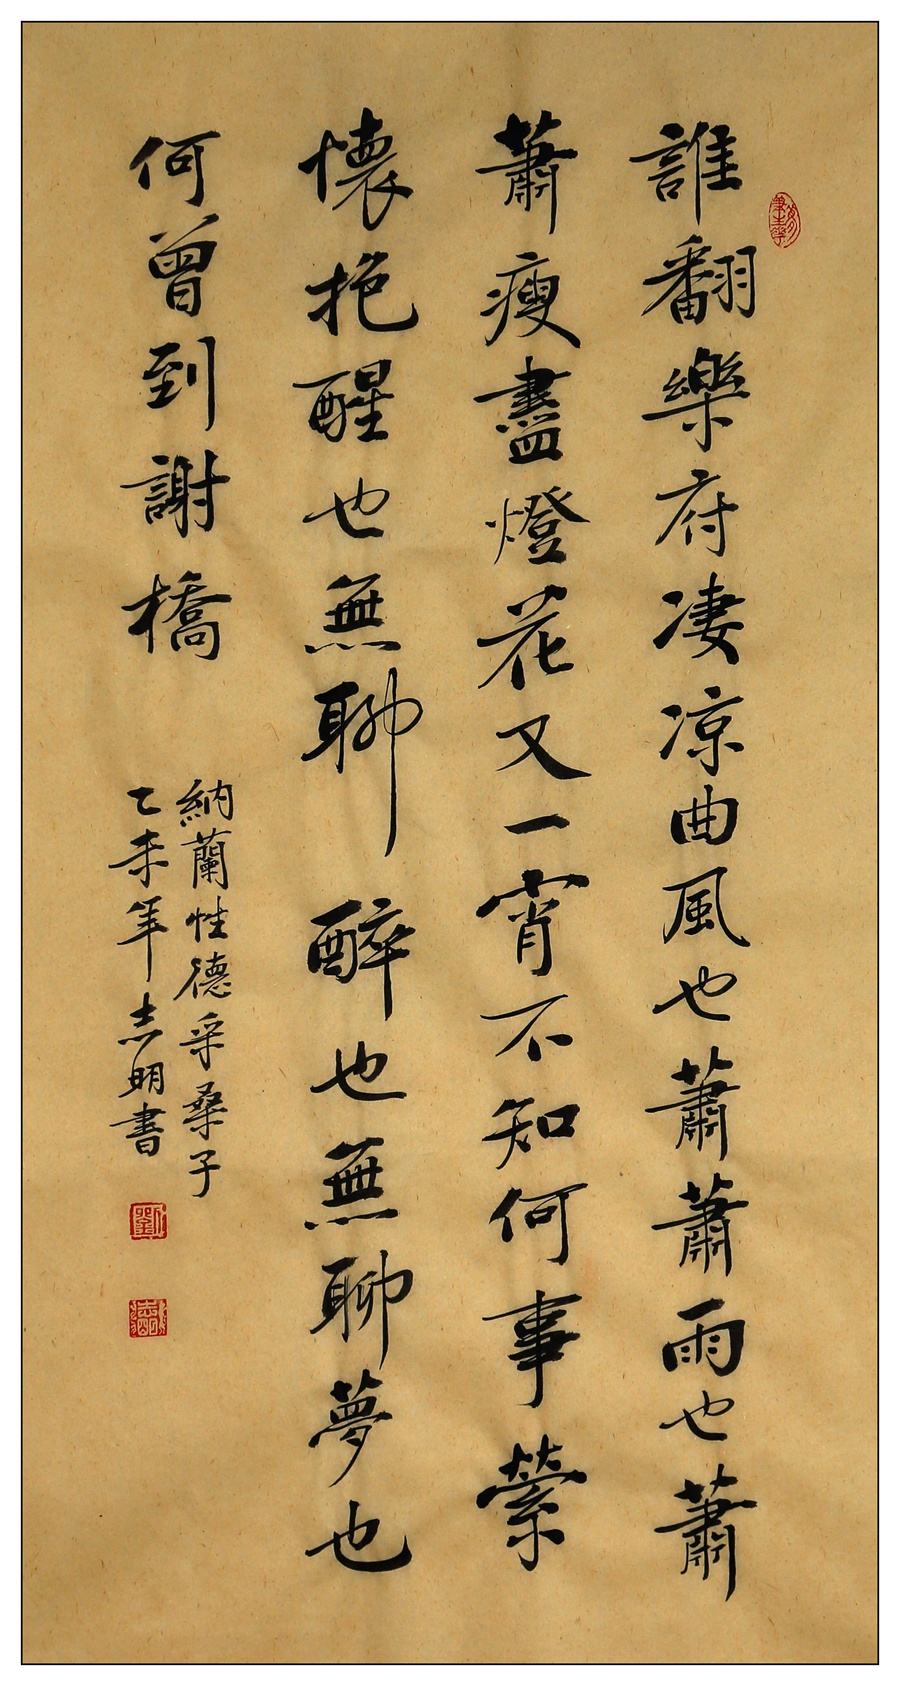 誰翻樂府凄涼曲風也蕭蕭雨也蕭
蕭瘦盡燈花又一宵不知何事縈
懷抱醒也無聊醉也無聊夢也
何曾到謝橋
納蘭性德采桑子
乙未年志明書
劉